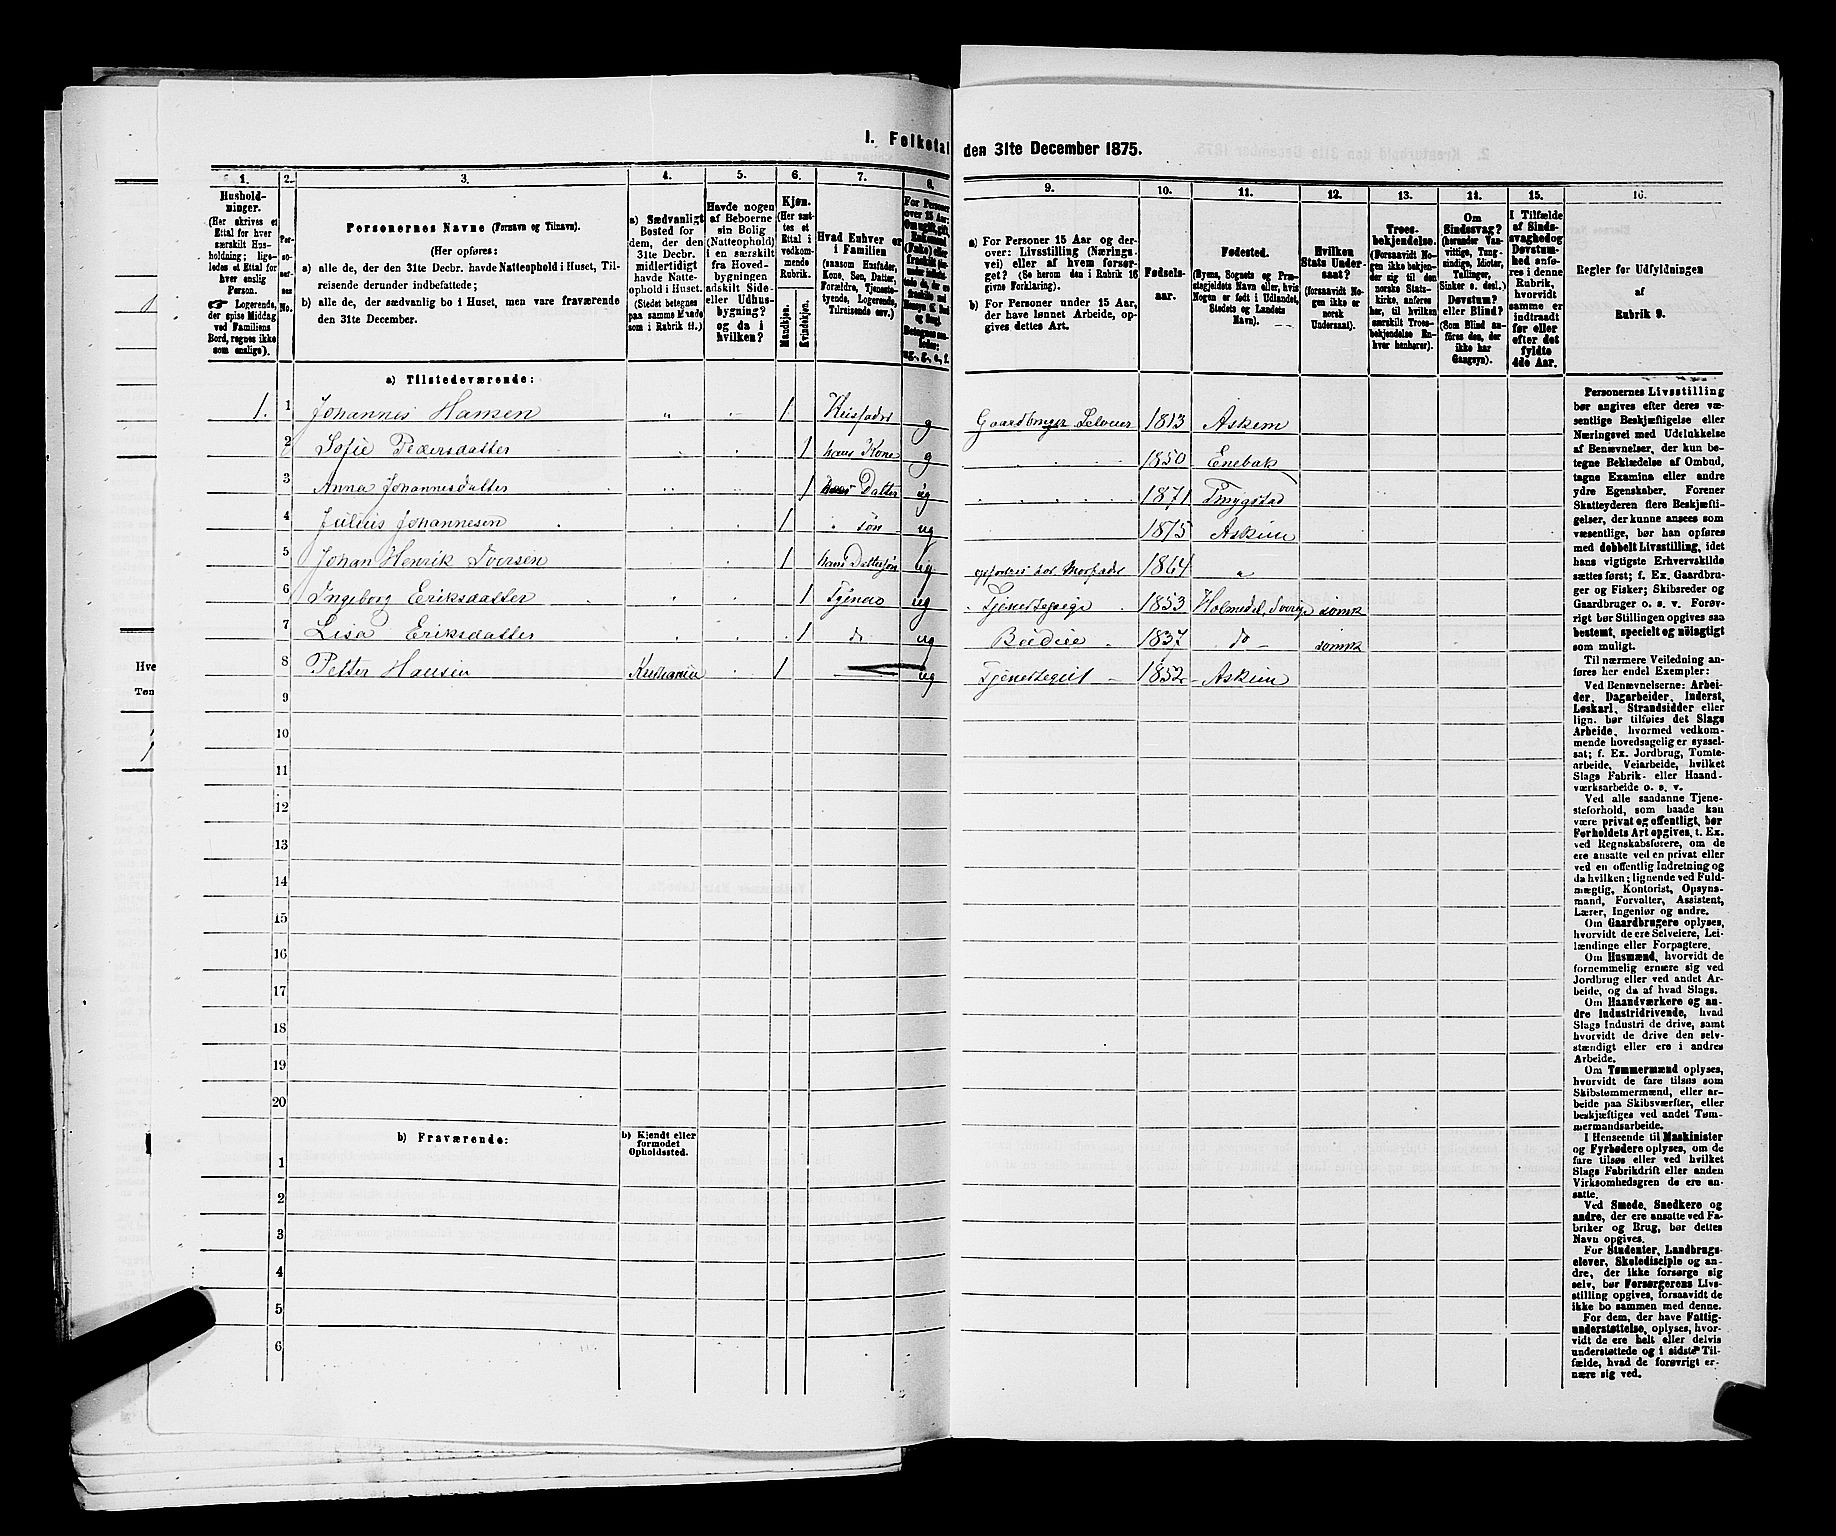 I. Folketal den 31te December 1875.
1. 2. 3. 4. 5. 6. 7. 8. 9. 10. 11. 12. 13. 14. 15. 16.
Husholdninger.
(Her skrives et
Ettal for hver
særskilt Husholdning;
ligeledes et Ettal for
hver enslig
Person.
☞ Logerende,
der spise Middag
ved Familiens
Bord, regnes ikke
som enslige).
Personernes No.
Personernes Navne (Fornavn og Tilnavn).
(Her opføres:
a) alle de, der den 31te Decbr. havde Natteophold i Huset, Tilreisende derunder indbefattede;
b) alle de, der sædvanlig bo i Huset, men vare fraværende
den 31te December.
a) Sædvanligt
Bosted for
dem, der den
31te Decbr.
midlertidigt
havde Natteophold i Huset.
(Stedet betegnes
paa samme Maade
som i Rubrik 11.)
Havde nogen
af Beboerne
sin Bolig
(Natteophold)
i en særskilt
fra Hovedbygningen
adskilt Side-
eller Udhusbygning?
og da i
hvilken?
Kjøn.
(Her sættes et
Ettal i
vedkommende
Rubrik.
Mandkjøn.
Kvindekjøn.
Hvad Enhver er
i Familien
(saasom Husfader,
Kone, Søn, Datter,
Forældre, Tjenestetyende, Logerende,
Tilreisende osv.)
For Personer
over 15 Aar:
a) For Personer 15 Aar og derover: Livsstilling (Næringsvei) eller af hvem forsørget? (Se herom den i Rubrik 16
givne Forklaring).
b) For Personer under 15 Aar,
der have lønnet Arbeide, opgives dettes Art.
Fødselsaar.
Fødested.
(Byens, Sognets og Præstegjeldets Navn eller, hvis
Nogen er født i Udlandet,
Stedets og Landets
Navn).
Hvilken
Stats Undersaat?
(forsaavidt Nogen ikke er
norsk
Undersaat).
Troesbekjendelse.
(Forsaavidt Nogen ikke bekjender sig til den
norske Statskirke, anføres
her, til hvilken
særskilt Troesbekjendelse Enhver henhører).
Om
Sindssvag?
(herunder Vanvittige, Tungsindige, Idioter,
Tullinger,
Sinker o. desl.)
Døvstum?
eller Blind?
(Som Blind anføres den, der
ikke har
Gangsyn).
I Tilfælde
af Sindssvaghed og
Døvstumhed anføres i denne
Rubrik,
hvorvidt
samme er
indtraadt
før eller
efter det
fyldte
4de Aar.
Regler for Udfyldningen
af
Rubrik 9.
a) Tilstedeværende:
1. 1 Johannes Hansen 1 Husfader g Gaardbruger Selveier 1813 Askim
2 Sofie Pedersdatter 1 hans Kone g 1850 Enebak
3 Anna Johannesdatter 1 Datter ug 1871 Trøgstad
4 Julius Johannesen 1 " Søn ug 1875 Askim
5 Johan Henrik Iversen 1 hans Dattersøn ug opfostres hos Morfader 1864 "
6 Ingeborg Eriksdatter 1 Tjener ug Tjenestepige 1853 Holmedal, Sverige svensk
7 Lisa Eriksdatter 1 do ug Budeie 1837 do svensk
8 Petter Hansen Kristiania 1 ug Tjenestegut 1852 Askim
9
10
11
12
13
14
15
16
17
18
19
20
b) Fraværende:
b) Kjendt eller
formodet
Opholdssted.
1
2
3
4
5
6
Personernes Livsstilling
bør angives efter deres væsentlige Beskjæftigelse eller
Næringsvei med Udelukkelse
af Benævnelser, der kun betegne Beklædelse af Ombud,
tagne Examina eller andre
ydre Egenskaber. Forener
Skatteyderen flere Beskjæftigelser, der kunne ansees som
væsentlige, bør han opføres
med dobbelt Livsstilling, idet
hans vigtigste Erhvervskilde
sættes først; f. Ex. Gaardbruger og Fisker; Skibsreder og
Gaardbruger o. s. v. Forøvrigt bør Stillingen opgives saa
bestemt, specielt og nøiagtigt
som muligt.
Til nærmere Veiledning anføres her endel Exempler:
Ved Benævnelserne: Arbeider, Dagarbeider, Inderst,
Løskarl, Strandsidder eller
lign. bør tilføies det Slags
Arbeide, hvormed vedkommende hovedsagelig er sysselsat; f. Ex. Jordbrug, Tomtearbeide, Veiarbeide, hvilket
Slags Fabrik- eller Haandværksarbeide o. s. v.
Ved alle saadanne Tjenesteforhold, som baade kan
være privat og offentligt, bør
Forholdets Art opgives, t. Ex.
ved Regnskabsførere, om de
ere ansatte ved en privat eller
ved en offentlig Indretning og
da hvilken; lignende ved Fuldmægtig, Kontorist, Opsynsmand, Forvalter, Assistent,
Lærer, Ingeniør og andre.
Om Gaardbrugere oplyses,
hvorvidt de ere Selveiere, Leilændinge eller Forpagtere.
Om Husmænd, hvorvidt de
fornemmelig ernære sig ved
Jordbrug eller ved andet Arbeide, og da af hvad Slags.
Om Haandværkere og andre Industridrivende, hvad
Slags Industri de drive, samt
hvorvidt de drive den selvstændigt eller ere i andres
Arbeide.
Om Tømmermænd oplyses,
hvorvidt de fare tilsøs som
Skibstømmermænd, eller arbeide paa Skibsværfter, eller
beskjæftiges ved andet Tømmermandsarbeide.
I Henseende til Maskinister
og Fyrbødere oplyses, om de
fare tilsøs eller ved hvilket
Slags Fabrikdrift eller anden
Virksomhedsgren de ere ansatte.
Ved Smede, Snedkere og
andre, der ere ansatte ved Fabriker og Brug, bør dettes
Navn opgives.
For Studenter, Landbrugselever, Skoledisciple og andre, der ikke forsørge sig
selv, bør Forsørgerens Livsstilling opgives, forsaavidt de
ikke bo sammen med denne.
For dem, der have Fattigunderstøttelse, oplyses, hvorvidt de ere helt eller delvis
understøttede og i sidste Tilfælde, hvad de forøvrigt ernære sig ved.